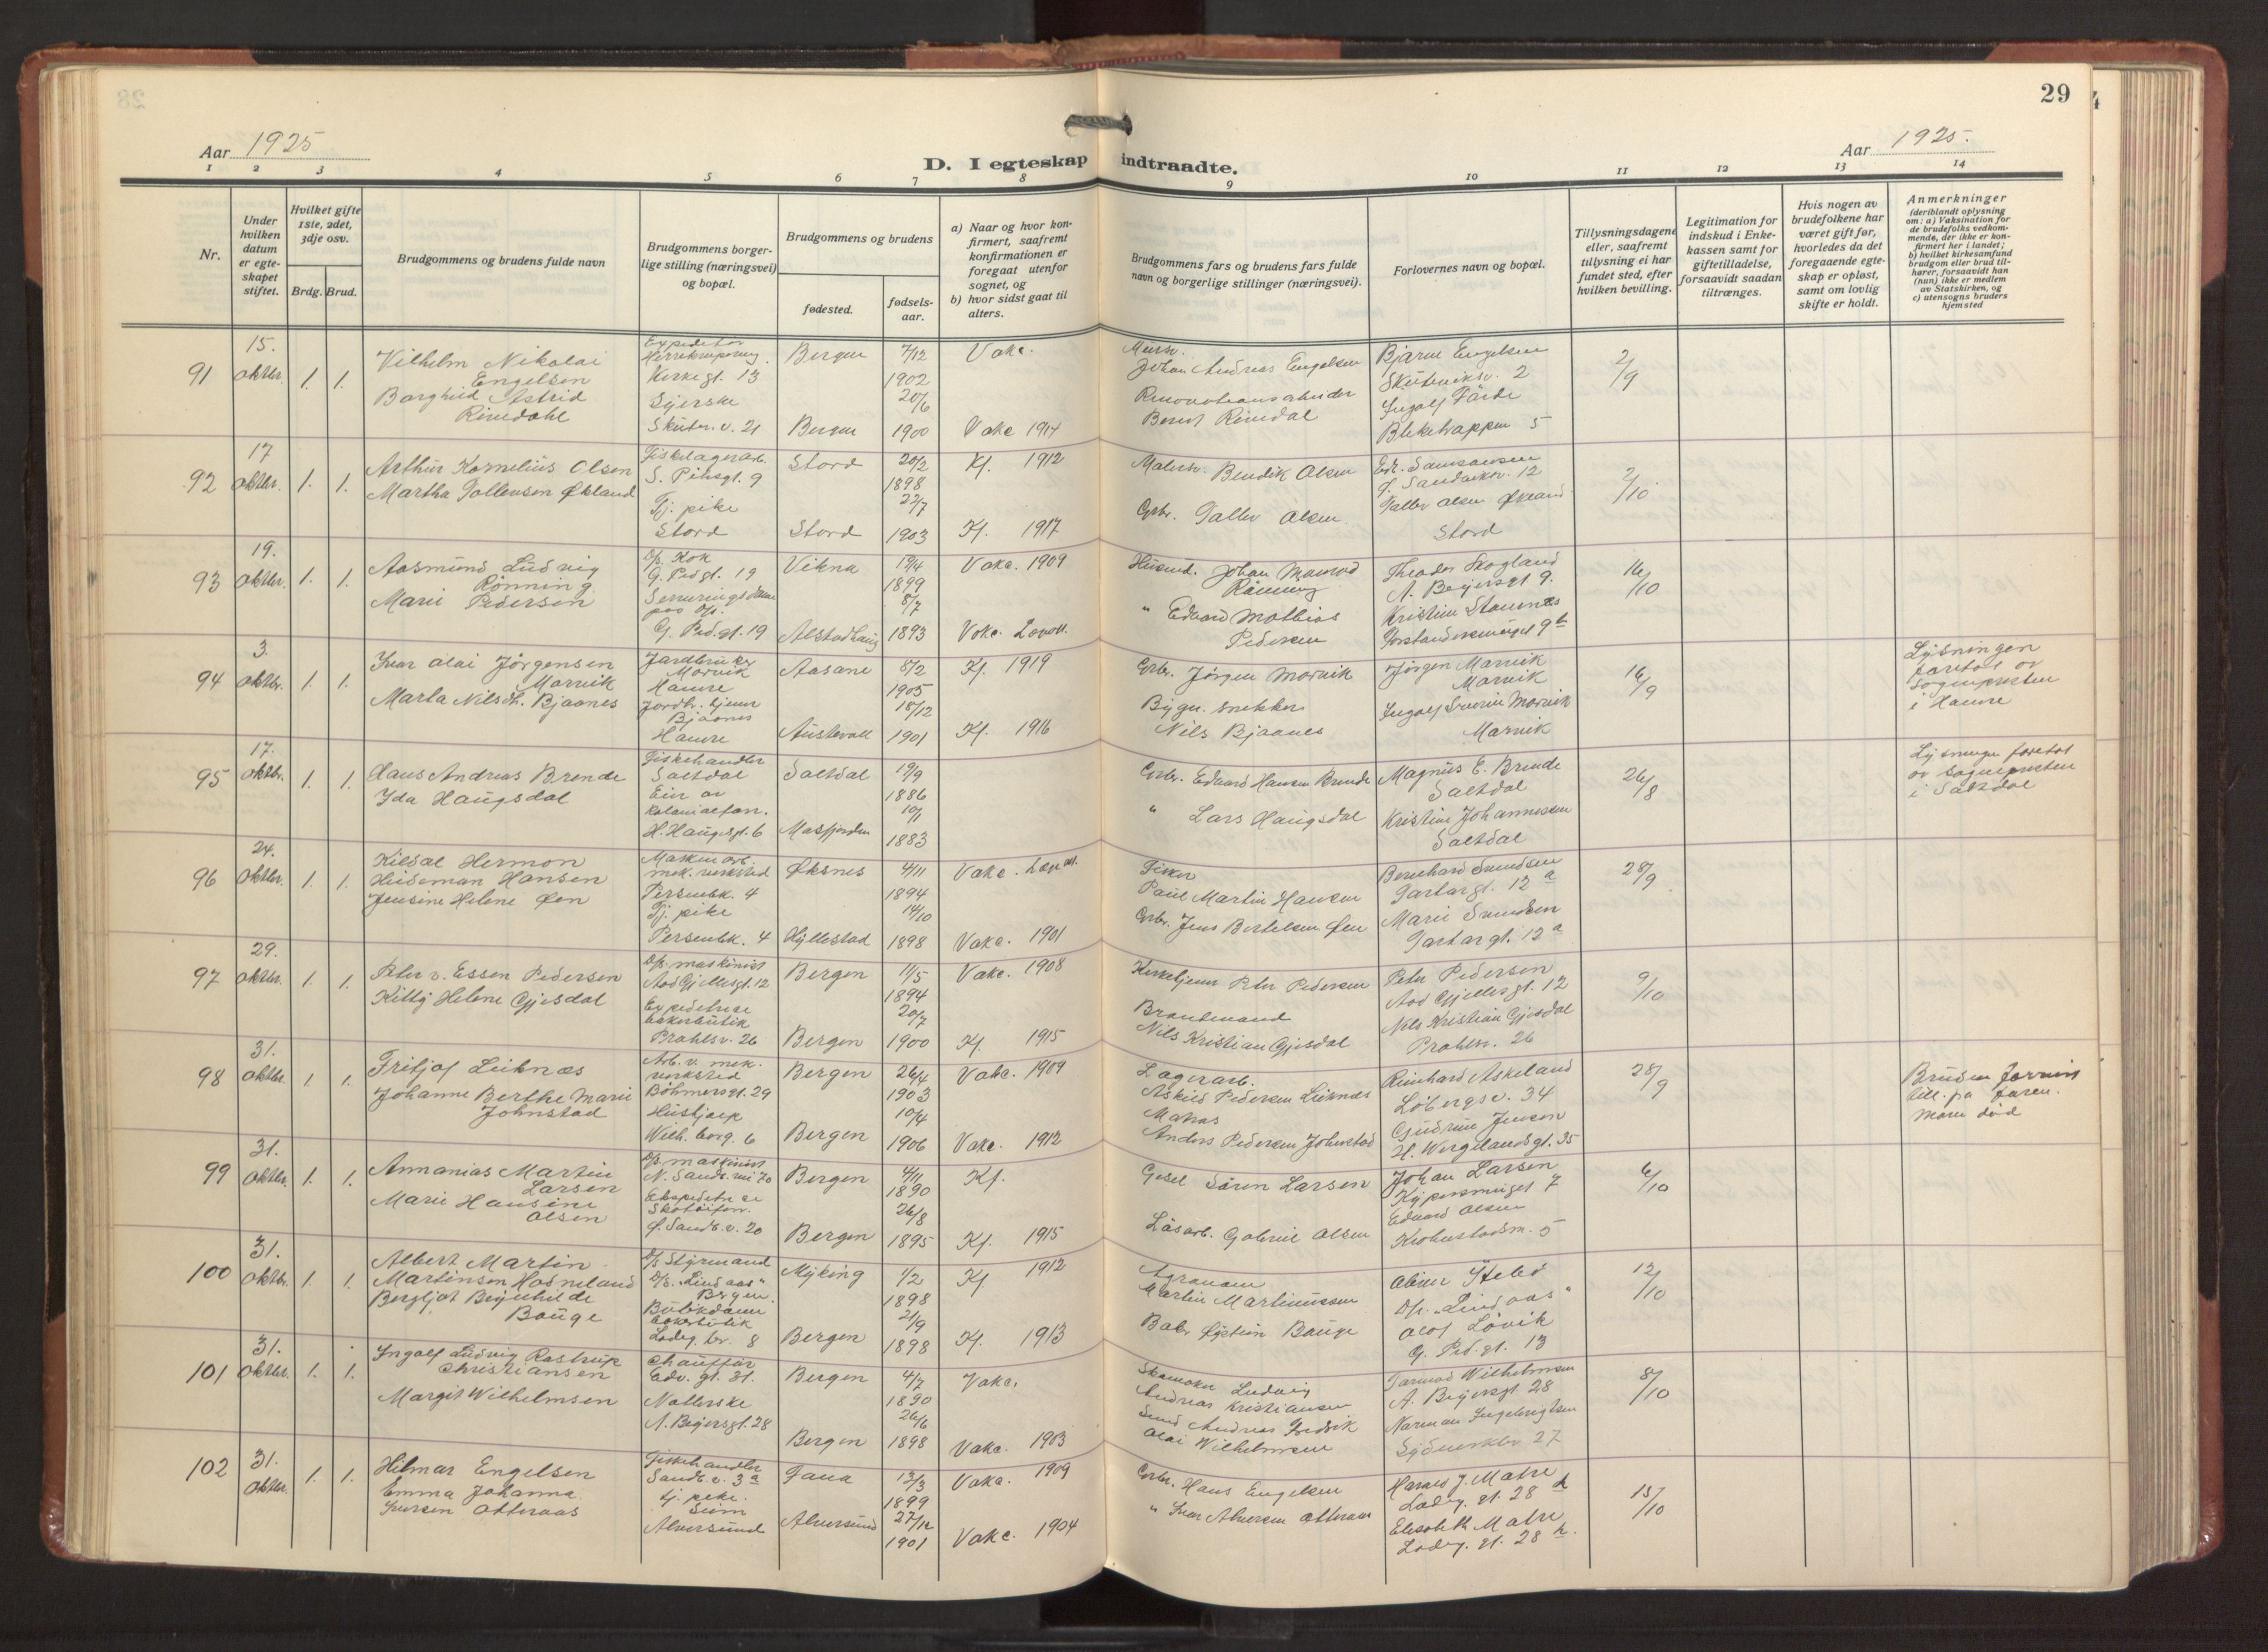 28
29
Aar 1925
D. I egteskap indtraadte.
Aar 1925.
1 2 3 4 5 6 7 8 9 10 11 12 13 14
Nr.
Under hvilken datum er egteskapet stiftet.
Hvilket gifte 1ste, 2det, 3dje osv.
Brdg. Brud.
Brudgommens og brudens fulde navn
Brudgommens borgerlige stilling (næringsvei) og bopæl.
Brudgommens og brudens
fødested.
fødselsaar.
a) Naar og hvor konfirmert, saafremt konfirmationen er foregaat utenfor sognet, og
b) hvor sidst gaat til alters.
Brudgommens fars og brudens fars fulde navn og borgerlige stillinger (næringsvei).
Forlovernes navn og bopæl.
Tillysningsdagene eller, saafremt tillysning ei har fundet sted, efter hvilken bevilling.
Legitimation for indskud i Enkekassen samt for giftetilladelse, forsaavidt saadan tiltrænges.
Hvis nogen av brudefolkene har været gift før, hvorledes da det foregaaende egteskap er opløst, samt om lovlig skifte er holdt.
Anmerkninger
(deriblandt oplysning om: a) Vaksination for de brudefolks vedkommende, der ikke er konfirmert her i landet; b) hvilket kirkesamfund brudgom eller brud tilhører, forsaavidt han (hun) ikke er medlem av Statskirken, og c) utensogns bruders hjemsted
91 15. oktbr. 1. 1.
Vilhelm Nikolai Engelsen
Borghild Astrid Rimdahl
Expeditør
Kirkegt. 13
Syerske
Skutev. v. 21
Bergen 7/12 1902 Vake.
Bergen 20/6 1900 Vake 1914
Johan Andreas Engelsen
Renovationsarbeider
Bernt Rimdal
Bjarne Engelsen
Skuteviksv. 2
Ingolf Førde
Blekebakken 5
2/9
92 17 oktbr. 1. 1.
Arthur Kornelius Olsen
Martha Tollevsen Økland
Fiskelagerarb.
S. Pihsgt. 9
Tj. pike
Stord
Stord 20/2 1898 Kf. 1912
Stord 22/7 1903 Kf. 1917
Malersv. Bendik Olsen
Gbr. Tallev Olsen.
Edv. Samsonsen
Ø. Sandviksv. 12
Tallev Olsen Økland
Stord
2/10
93 19. oktbr. 1. 1.
Aasmund Ludvig Rönning
Marie Pedersen
D/s. Kok
G. Ped gt. 19
Serveringsdame
paa D/s.
G. Ped. gt. 19
Vikna 19/4 1899 Vake. 1909
Alstadhaug 8/7 1893 Vake.
Husmd. Johan
Rönning
" Edvard Mathias
Pedersen
Theodor Skogland
A. Beyersgt 9.
Kristine Stamnes
9b
16/10
94 3. oktbr. 1. 1.
Ivar Olai Jörgensen Morvik
Marta Nilsdt. Bjaanes
Jordbruker
Morvik
Hamre
Bjaanes
Hamre
Aasane 8/2 1905 Kf. 1919
Austevoll 18/12 1901 Kf. 1916
Gbr. Jörgen Morvik
Bygn. snekker
Nils Bjaanes
Jörgen Morvik
Morvik
Ingolf Severin Morvik
Morvik
14/9
Lysningen
foretat av
sognepresten
i Hamre
95 17. oktbr. 1. 1.
Hans Andreas Brende
Ida Haugsdal
Fiskehandler
Saltdal
Eier av
kolonialforr.
H. Haugesgt. 6
Saltdal 19/9 1886
Masfjorden 10/1 1883
Gbr. Edvard Hansen Brende
" Lars Haugsdal
Magnus E. Brende
Saltdal
Kristine Johannessen
Saltdal
26/8
Lysningen foretat
av sognepresten
i Saltdal
96 24. oktbr. 1. 1.
Kildal Hermon
Heideman Hansen
Jensine Helene Øen
Maskinarb.
mek. verksted
Persenbk. 4
Tj. pike
Persenbk. 4
Øksnes 4/11 1894 Vake.
Hyllestad 14/10 1898 Vake. 1901
Fisker
Paul Martin Hansen
Gbr. Jens Bertelsen Øen
Bernhard Svendsen
Tartargt. 12 a
Marie Svendsen
Tartargt. 12 a
28/9
97 29. oktbr. 1. 1.
Peter v. Essen Pedersen
Kitty Helene Gjesdal
D/s. maskinist
Aad Gjellesgt. 12
Expeditrise
bakerbutik
Prahlsv. 26
Bergen 11/5 1894 Vake. 1908
Bergen 20/7 1900 Kf. 1915
Kirketjener Peter Pedersen
Brandmand
Nils Kristian Gjesdal
Peter Pedersen
Aad Gjellesgt. 12
Nils Kristian Gjesdal
Prahlsv. 26
9/10
98 31. oktbr. 1 1.
Fritjof Leiknæs
Johanne Berthe Marie Johnstad
Arb. v. mek.
verksted
Böhmersgt. 29
Hushjelp
Wilh. borg. 6
Bergen 26/4 1903 Vake. 1909
Bergen 10/4 1906 Vake. 1912
Lagerarb.
Askild Pedersen Leiknæs
Matros
Anders Pedersen Johnstad
Reinhard Askeland
Löbergsv. 34
Gudrun Jensen
H. Wergelandsgt. 35
28/9
Bruden
till. fra faren.
Moren död
99 31. oktbr. 1. 1.
Annanias Martin Larsen
Marie Hansine Olsen
D/s. maskinist
N. Sandv. vei 70
Ekspeditrise
Skotöiforr.
Ø. Sandv. v. 20
Bergen 4/11 1890 Kf.
Bergen 26/8 1895 Kf. 1915
Gesel Sören Larsen
Løsarb. Gabriel Olsen
Johan Larsen
Kypersmuget 7
Edvard Olsen
Krohnstadsm. 5
6/10
100 31. oktbr. 1. 1.
Albert Martin
Martinson Hodneland
Bergljot Brynhilde Bauge
D/s Styrmand
D/s. "Lindaas"
Bergen.
Butikdame
bakerbutik
Ladeg. br. 8
Myking 1/2 1898 Kf 1912
Bergen 21/9 1898 Kf. 1913
Agronom
Martin Martinussen
Øistein Bauge
D/s. "Lindaas"
Olof Lövik
G. Ped. gt. 13
12/10
101 31. oktbr. 1. 1.
Ingolf Ludvig Rostrup Christiansen
Margit Wilhelmsen
chauffør
Edv. gt. 31.
A. Beyersgt. 28
Bergen 4/7 1890 Vake.
Bergen 26/6 1898 Vake. 1903
Skomaker Ludvig
Andreas Kristiansen
Andreas Fredrik
Olai Wilhelmsen
Tormod Wilhelmsen
A. Beyersgt 28
Norman Ingebrigtsen
27
8/10
102 31. oktbr. 1. 1.
Hilmar Engelsen
Emma Johanna
Iversen Otteraas
Fiskehandler
Sandv. v. 3 a
tj. pike.
Seim
Alversund
Fana 13/3 1899 Vake. 1909
Alversund 27/12 1901 Vake. 1904
Gbr. Hans Engelsen
" Iver Alversen Otteraas
Harald J. Matre
Ladeg. gt. 28
Elisabeth Matre
Ladeg. gt. 28
15/10